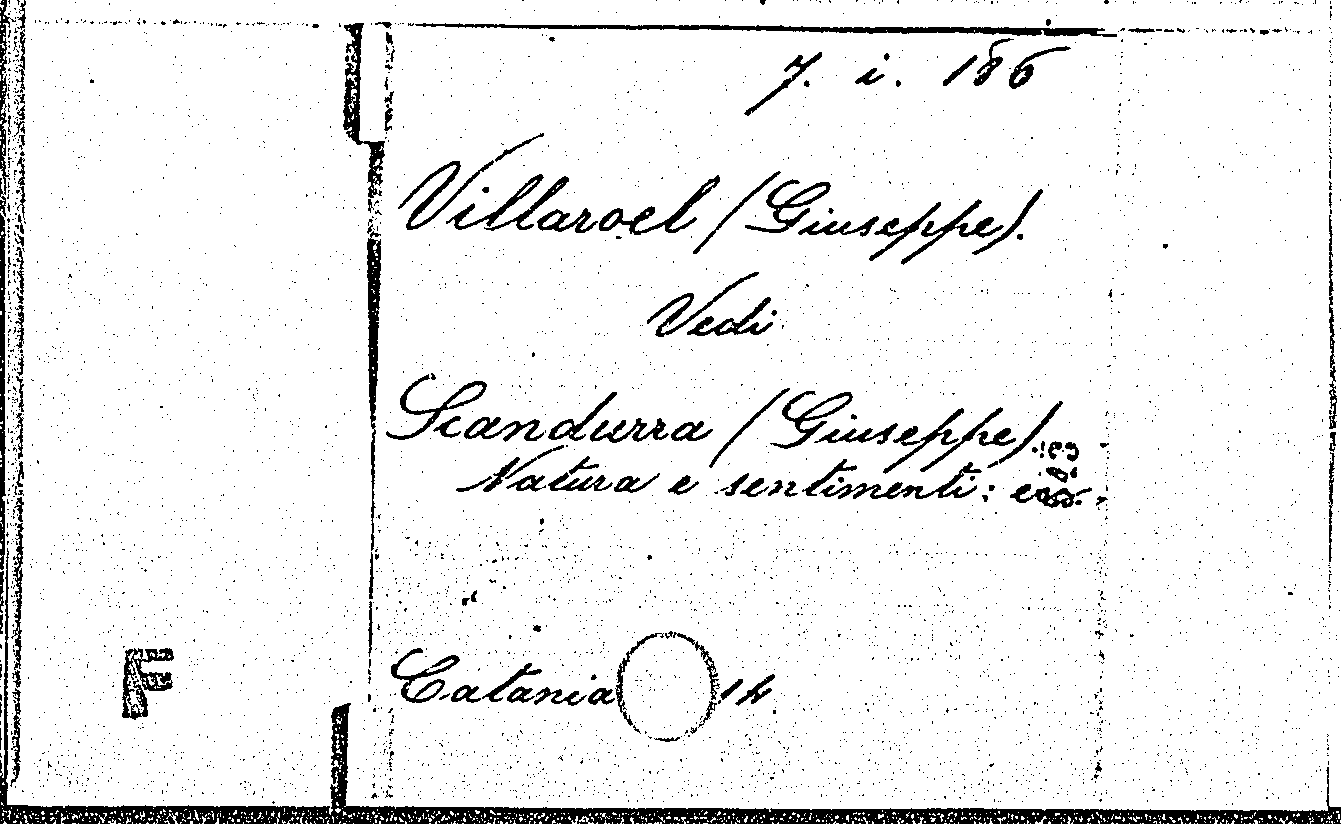 7. i. 186
Villaroel (Giuseppe).
Vedi
Scandurra (Giuseppe).
Natura e sentimenti:
F
Catania 14